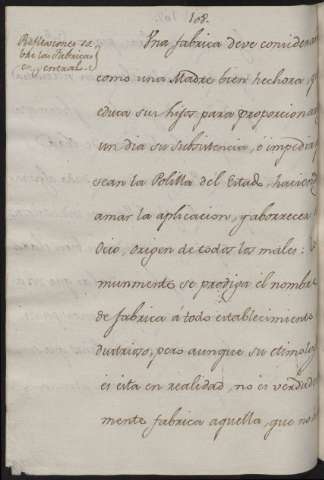 108.
Reflexiones so-
bre las Fabricas
en general.
Una fabrica deve considerar
como una Madre bien hechora, q
educa sus hijos para proporcionar
un dia su subsistencia, e impedir q
sean la Polilla del Estado, haciend
amar la aplicacion, y aborrecer
Ocio, origen de todos los males:
munmente se prodiga el nombre
de fabrica a todo establecimiento
dustrioso; pero aunque su etimolog
es esta en realidad, no es verdad
mente fabrica aquella, que no